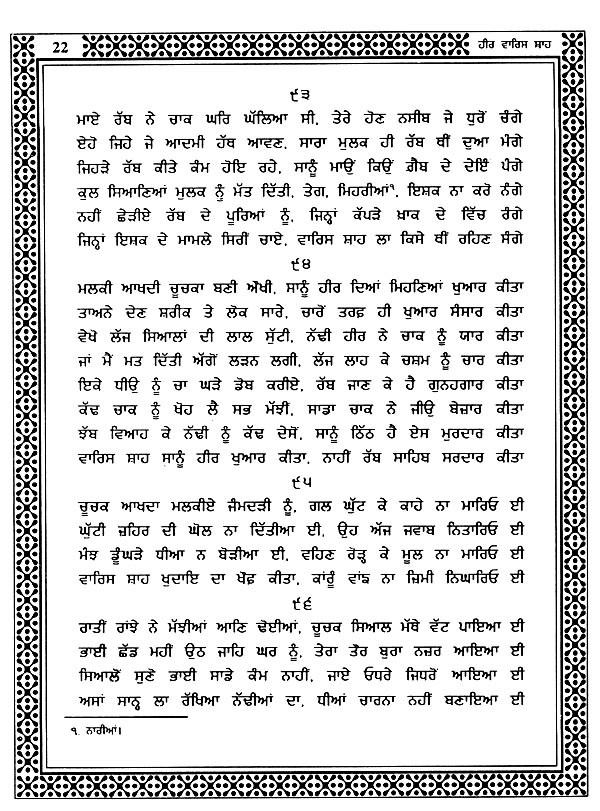 22
ਹੀਰ ਵਾਰਿਸ ਸ਼ਾਹ
੯੩
ਮਾਏ ਰੱਬ ਨੇ ਚਾਕ ਘਰਿ ਘੱਲਿਆ ਸੀ, ਤੇਰੇ ਹੋਣ ਨਸੀਬ ਜੇ ਧੁਰੋਂ ਚੰਗੇ
ਏਹੋ ਜਿਹੇ ਜੇ ਆਦਮੀ ਹੱਥ ਆਵਣ, ਸਾਰਾ ਮੁਲਕ ਹੀ ਰੱਬ ਥੀਂ ਦੁਆ ਮੰਗੇ
ਜਿਹੜੇ ਰੱਬ ਕੀਤੇ ਕੰਮ ਹੋਇ ਰਹੇ, ਸਾਨੂੰ ਮਾਉਂ ਕਿਉਂ ਗ਼ੈਬ ਦੇ ਦੇਇੰ ਪੰਗੇ
ਕੁਲ ਸਿਆਣਿਆਂ ਮੁਲਕ ਨੂੰ ਮੱਤ ਦਿੱਤੀ, ਤੇਗ, ਮਿਹਰੀਆਂ੧, ਇਸ਼ਕ ਨਾ ਕਰੋ ਨੰਗੇ
ਨਹੀਂ ਛੇੜੀਏ ਰੱਬ ਦੇ ਪੂਰਿਆਂ ਨੂੰ, ਜਿਨ੍ਹਾਂ ਕੱਪੜੇ ਖ਼ਾਕ ਦੇ ਵਿੱਚ ਰੰਗੇ
ਜਿਨ੍ਹਾਂ ਇਸ਼ਕ ਦੇ ਮਾਮਲੇ ਸਿਰੀਂ ਚਾਏ, ਵਾਰਿਸ ਸ਼ਾਹ ਲਾ ਕਿਸੇ ਥੀਂ ਰਹਿਣ ਸੰਗੇ
੯੪
ਮਲਕੀ ਆਖਦੀ ਚੂਚਕਾ ਬਣੀ ਔਖੀ, ਸਾਨੂੰ ਹੀਰ ਦਿਆਂ ਮਿਹਣਿਆਂ ਖੁਆਰ ਕੀਤਾ
ਤਾਅਨੇ ਦੇਣ ਸ਼ਰੀਕ ਤੇ ਲੋਕ ਸਾਰੇ, ਚਾਰੋਂ ਤਰਫ਼ ਹੀ ਖੁਆਰ ਸੰਸਾਰ ਕੀਤਾ
ਵੇਖੋ ਲੱਜ ਸਿਆਲਾਂ ਦੀ ਲਾਲ ਸੁੱਟੀ, ਨੱਢੀ ਹੀਰ ਨੇ ਚਾਕ ਨੂੰ ਯਾਰ ਕੀਤਾ
ਜਾਂ ਮੈਂ ਮਤ ਦਿੱਤੀ ਅੱਗੋਂ ਲੜਨ ਲਗੀ, ਲੱਜ ਲਾਹ ਕੇ ਚਸ਼ਮ ਨੂੰ ਚਾਰ ਕੀਤਾ
ਇਕੇ ਧੀਉ ਨੂੰ ਚਾ ਘੜੇ ਡੋਬ ਕਰੀਏ, ਰੱਬ ਜਾਣ ਕੇ ਹੈ ਗੁਨਹਗਾਰ ਕੀਤਾ
ਕੱਢ ਚਾਕ ਨੂੰ ਖੋਹ ਲੈ ਸਭ ਮੱਝੀਂ, ਸਾਡਾ ਚਾਕ ਨੇ ਜੀਉ ਬੇਜ਼ਾਰ ਕੀਤਾ
ਝੱਬ ਵਿਆਹ ਕੇ ਨੱਢੀ ਨੂੰ ਕੱਢ ਦੇਸੋਂ, ਸਾਨੂੰ ਠਿੱਠ ਹੈ ਏਸ ਮੁਰਦਾਰ ਕੀਤਾ
ਵਾਰਿਸ ਸ਼ਾਹ ਸਾਨੂੰ ਹੀਰ ਖੁਆਰ ਕੀਤਾ, ਨਾਹੀਂ ਰੱਬ ਸਾਹਿਬ ਸਰਦਾਰ ਕੀਤਾ
੯੫
ਚੂਚਕ ਆਖਦਾ ਮਲਕੀਏ ਜੰਮਦੜੀ ਨੂੰ, ਗਲ ਘੁੱਟ ਕੇ ਕਾਹੇ ਨਾ ਮਾਰਿਓ ਈ
ਘੁੱਟੀ ਜ਼ਹਿਰ ਦੀ ਘੋਲ ਨਾ ਦਿੱਤੀਆ ਈ, ਉਹ ਅੱਜ ਜਵਾਬ ਨਿਤਾਰਿਓ ਈ
ਮੰਝ ਡੂੰਘੜੇ ਧੀਆ ਨ ਬੋੜੀਆ ਈ, ਵਹਿਣ ਰੋੜ੍ਹ ਕੇ ਮੂਲ ਨਾ ਮਾਰਿਓ ਈ
ਵਾਰਿਸ ਸ਼ਾਹ ਖੁਦਾਇ ਦਾ ਖੌਫ਼ ਕੀਤਾ, ਕਾਂਰੂੰ ਵਾਂਙ ਨਾ ਜ਼ਿਮੀ ਨਿਘਾਰਿਓ ਈ
੯੬
ਰਾਤੀਂ ਰਾਂਝੇ ਨੇ ਮੱਝੀਆਂ ਆਣਿ ਢੋਈਆਂ, ਚੂਚਕ ਸਿਆਲ ਮੱਥੇ ਵੱਟ ਪਾਇਆ ਈ
ਭਾਈ ਛੱਡ ਮਹੀਂ ਉਠ ਜਾਹਿ ਘਰ ਨੂੰ, ਤੇਰਾ ਤੌਰ ਬੁਰਾ ਨਜ਼ਰ ਆਇਆ ਈ
ਸਿਆਲੋਂ ਸੁਣੋ ਭਾਈ ਸਾਡੇ ਕੰਮ ਨਾਹੀਂ, ਜਾਏ ਓਧਰੇ ਜਿਧਰੋਂ ਆਇਆ ਈ
ਅਸਾਂ ਸਾਨ੍ਹ ਲਾ ਰੱਖਿਆ ਨੱਢੀਆਂ ਦਾ, ਧੀਆਂ ਚਾਰਨਾ ਨਹੀਂ ਬਣਾਇਆ ਈ
੧. ਨਾਰੀਆਂ।